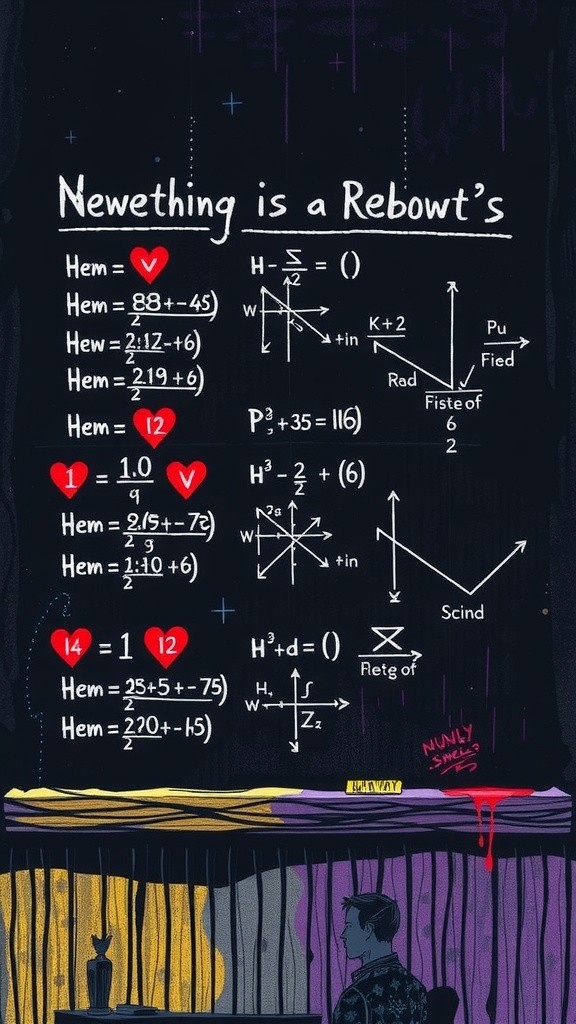 Newething is a Rebowt's
Hem = V
Hem = 88+-45)
2
Hew = 2:12-+6)
2
Hem = 219+6)
2
Hem = 12
1 = 1.0 V
9
Hem = 2.15+-72)
2 9
Hem = 1:10+6)
2
14 = 1 12
Hem = 25+5+-75)
2
Hem = 220+-15)
2
H - = ()
2
W
+in
K+2
Rad
Pu
Fied
Fiste of
6
2
+35=116)
H³ - 2 + (6)
2
W
+in
Scind
H³+d = ()
Retg of
H
W
Z₂
NUNLY